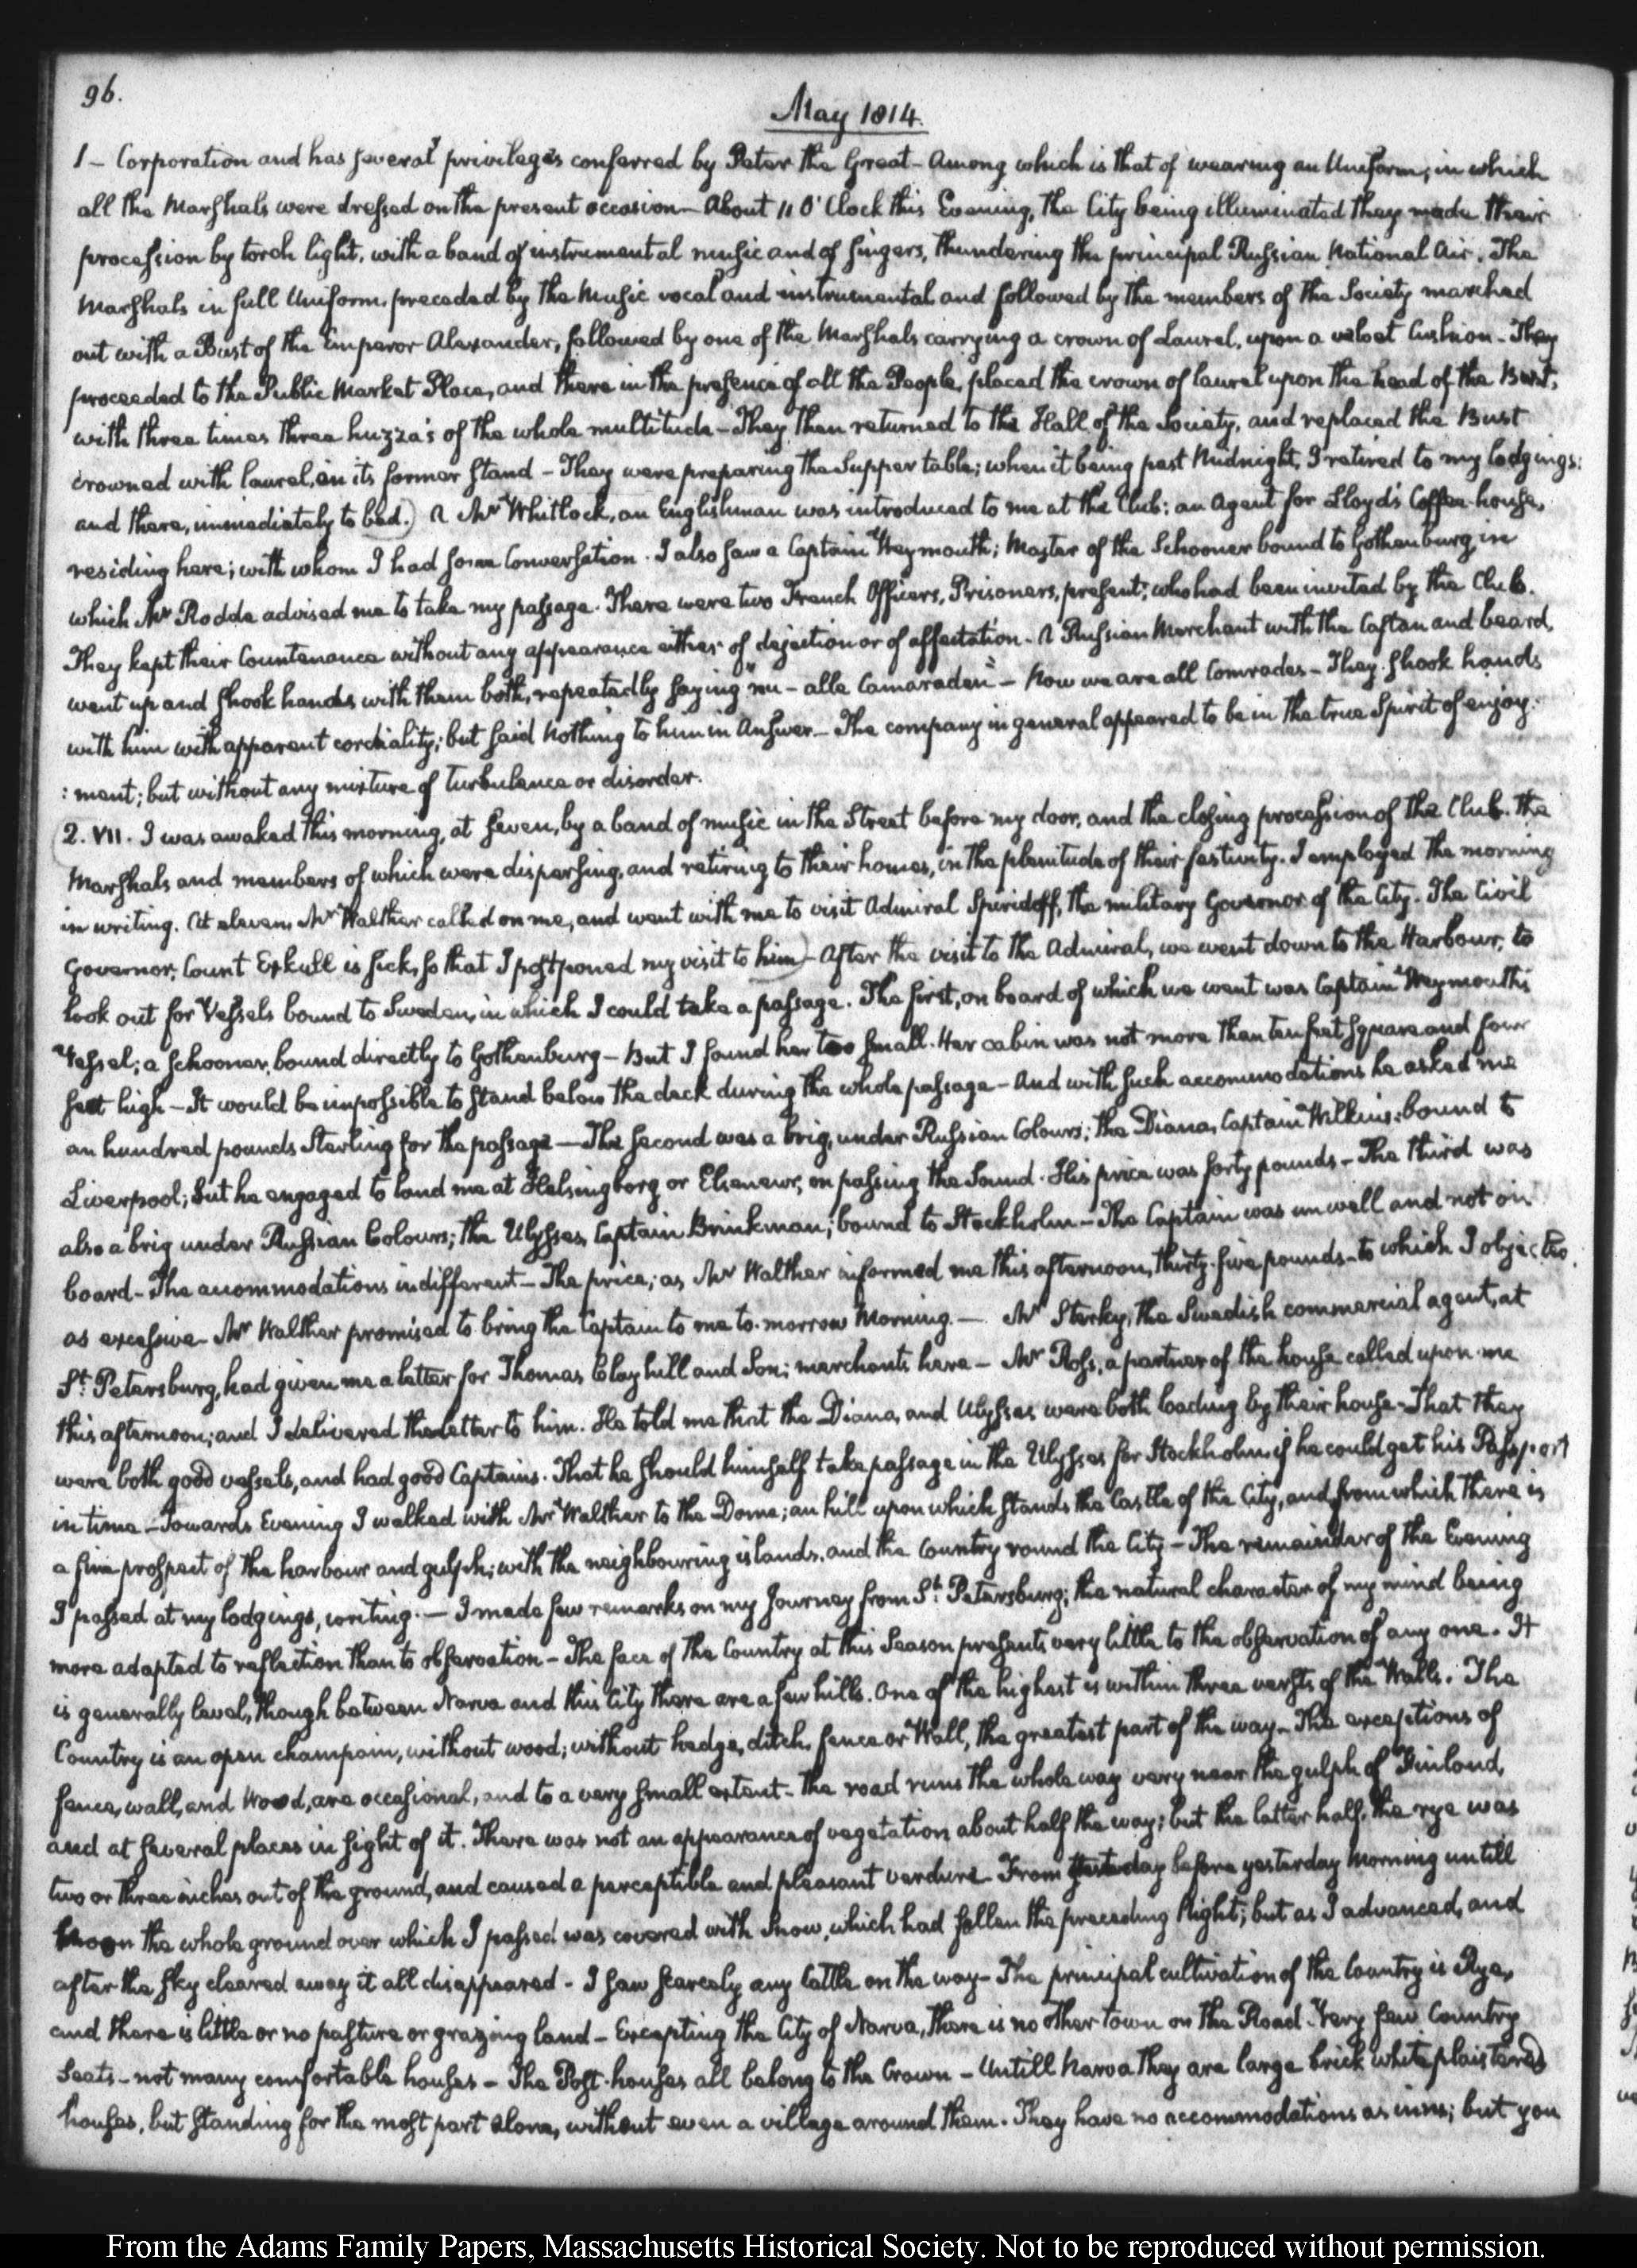 96.
May 1814.
1 - Corporation and has several privileges conferred by Peter the Great - Among which is that of wearing an Uniform; in which
all the Marshals were dressed on the present occasion - About 11 O'Clock this Evening, the City being illuminated they made their
procession by torch light, with a band of instrumental music and of singers, thundering the principal Russian National Air. The
Marshals in full Uniform, preceded by the Music vocal and instrumental and followed by the members of the Society marched
out with a Bust of the Emperor Alexander, followed by one of the Marshals carrying a crown of Laurel, upon a velvet Cushion - They
proceeded to the Public Market Place, and there in the presence of all the People, placed the crown of laurel upon the head of the Bust,
with three times three huzza's of the whole multitude - They then returned to the Hall of the Society, and replaced the Bust
crowned with laurel, on its former stand - They were preparing the Supper table; when it being past Midnight, I retired to my lodgings:
and there, immediately to bed.) A Mr Whitlock, an Englishman was introduced to me at the Club: an Agent for Lloyd's Coffee-house,
residing here; with whom I had some Conversation. I also saw a Captain Weymouth; Master of the Schooner bound to Gothenburg in
which Mr Rodde advised me to take my passage. There were two French Officers, Prisoners, present; who had been invited by the Club.
They kept their Countenance without any appearance either of dejection or of affectation. A Russian Merchant with the Caftan and beard,
went up and shook hands with them both, repeatedly saying "nu - alle Camaraden" - Now we are all Comrades - They shook hands
with him with apparent cordiality; but said nothing to him in Answer - The company in general appeared to be in the true Spirit of enjoy-
:ment; but without any mixture of turbulence or disorder.
2. VII. I was awaked this morning, at seven, by a band of music in the Street before my door, and the closing procession of the Club. the
Marshals and members of which were dispersing, and retiring to their homes, in the plenitude of their festivity. I employed the morning
in writing. At eleven, Mr Walther called on me, and went with me to visit Admiral Spiridoff, the military Governor of the City. The Civil
Governor, Count Exkull is sick, so that I postponed my visit to him) - After the visit to the Admiral, we went down to the Harbour, to
look out for Vessels bound to Sweden, in which I could take a passage. The first, on board of which we went was Captain Weymouth's
Vessel; a schooner, bound directly to Gothenburg - But I found her too small. Her cabin was not more than ten feet square and four
feet high - It would be impossible to stand below the deck during the whole passage - And with such accommodations he asked me
an hundred pounds Sterling for the passage — The second was a brig, under Russian Colours; the Diana, Captain Wilkins: bound to
Liverpool; but he engaged to land me at Helsingborg or Elseneur, on passing the Sound. His price was forty pounds - The third was
also a brig under Russian Colours; the Ulysses, Captain Brinkman; bound to Stockholm - The Captain was unwell and not on
board - The accommodations indifferent - The price; as Mr Walther informed me this afternoon, thirty-five pounds - to which I objected.
as excessive - Mr Walther promised to bring the Captain to me to-morrow Morning. — Mr Sterky, the Swedish commercial agent, at
St. Petersburg, had given me a letter for Thomas Clayhill and Son; merchants here - Mr Ross, a partner of the house called upon me
this afternoon; and I delivered the letter to him. He told me that the Diana, and Ulysses were both loading by their house - That they
were both good vessels, and had good Captains. That he should himself take passage in the Ulysses for Stockholm if he could get his Passport
in time - Towards Evening I walked with Mr Walther to the Dome; an hill upon which stands the Castle of the City, and from which there is
a fine prospect of the harbour and gulph; with the neighbouring islands, and the Country round the City - The remainder of the Evening
I passed at my lodgings, writing. — I made few remarks on my Journey from St. Petersburg; the natural character of my mind being
more adapted to reflection than to observation - The face of the Country at this Season presents very little to the observation of any one. It
is generally level, though between Narva and this City there are a few hills. One of the highest is within three versts of the Walls. The
Country is an open champain, without wood; without hedge, ditch, fence or Wall, the greatest part of the way - The exceptions of
fence, wall, and Wood, are occasional, and to a very small extent - the road runs the whole way very near the gulph of Finland,
and at several places in sight of it. There was not an appearance of vegetation about half the way; but the latter half, the rye was
two or three inches out of the ground, and caused a perceptible and pleasant verdure - From day before yesterday Morning untill
Noon the whole ground over which I passed was covered with Snow, which had fallen the preceding Night; but as I advanced, and
after the sky cleared away it all disappeared - I saw scarcely any Cattle on the way - The principal cultivation of the Country is Rye,
and there is little or no pasture or grazing land - Excepting the City of Narva, there is no other town on the Road. Very few Country
Seats - not many comfortable houses - The Post-houses all belong to the Crown - Untill Narva they are large brick white plaistered
houses, but standing for the most part alone, without even a village around them. They have no accommodations as inns; but you
From the Adams Family Papers, Massachusetts Historical Society. Not to be reproduced without permission.